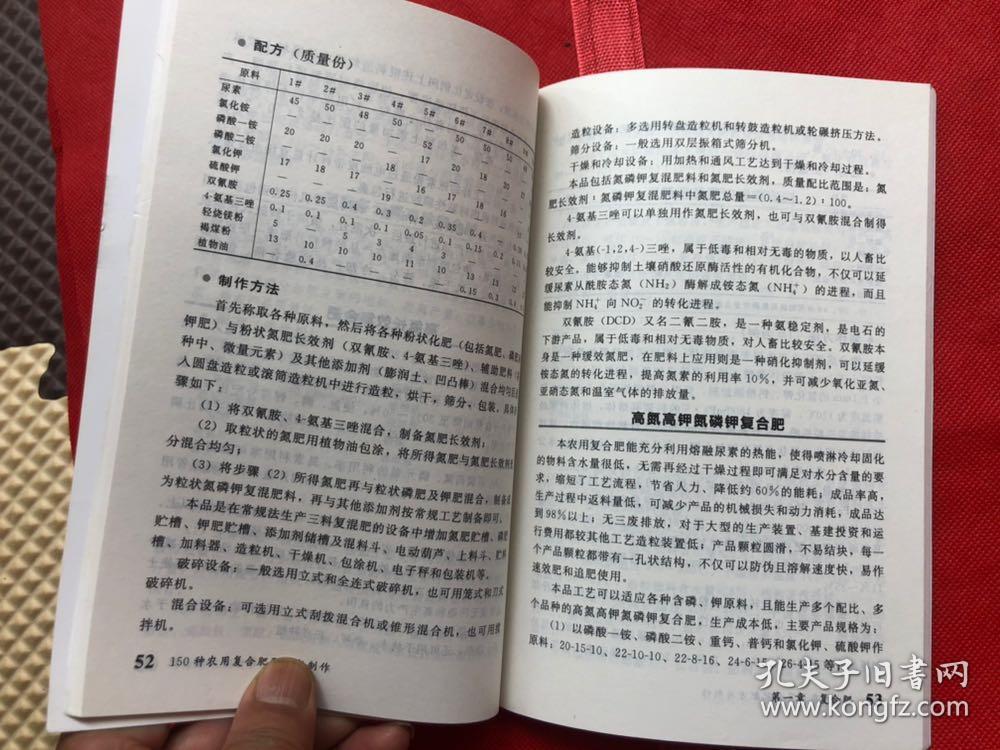 ● 配方（质量份）
原料 1# 2# 3# 4# 5# 6# 7# 8#
尿素 45 50 48 50 — — — —
氯化铵 — — — — 52 50 50 50
磷酸一铵 — 20 20 — — 20 — 20
磷酸二铵 20 — — 20 17 — 18 —
氯化钾 17 18 — 19 — 17 18 17
硫酸钾 — — 17 — 16 — — 16
双氰胺 0.25 0.25 0.4 0.3 0.2 0.35 0.4
4-氨基三唑
轻烧镁粉
褐煤粉
植物油
● 制作方法
首先称取各种原料，然后将各种粉状化肥（包括氮肥、磷肥
钾肥）与粉状氮肥长效剂（双氰胺、4-氨基三唑）、辅助肥料（
种中、微量元素）及其他添加剂（膨润土、凹凸棒）混合均匀后
入圆盘造粒或滚筒造粒机中进行造粒，烘干，筛分，包装，具体
骤如下：
（1）将双氰胺、4-氨基三唑混合，制备氮肥长效剂；
（2）取粒状的氮肥用植物油包涂，将所得氮肥与氮肥长效剂
分混合均匀；
（3）将步骤（2）所得氮肥再与粒状磷肥及钾肥混合，制备成
为粒状氮磷钾复混肥料，再与其他添加剂按常规工艺制备即可。
本品是在常规法生产三料复混肥的设备中增加氮肥贮槽、磷肥
贮槽、钾肥贮槽、添加剂储槽及混料斗、电动葫芦、上料斗、贮料
槽、加料器、造粒机、干燥机、包涂机、电子秤和包装机等。
破碎设备：一般选用立式和全连式破碎机，也可用笼式和刀式
破碎机。
混合设备：可选用立式刮拨混合机或锥形混合机，也可用搅
拌机。
52 150 种农用复合肥 制作
造粒设备：多选用转盘造粒机和转鼓造粒机或轮碾挤压方法。
筛分设备：一般选用双层振箱式筛分机。
干燥和冷却设备：用加热和通风工艺达到干燥和冷却过程。
本品包括氮磷钾复混肥料和氮肥长效剂，质量配比范围是：氮
肥长效剂：氮磷钾复混肥料中氮肥总量=（0.4～1.2）：100。
4-氨基三唑可以单独用作氮肥长效剂，也可与双氰胺混合制得
长效剂。
4-氨基(-1,2,4-)三唑，属于低毒和相对无毒的物质，以人畜比
较安全。能够抑制土壤硝酸还原酶活性的有机化合物，不仅可以延
缓尿素从酰胺态氮（NH₂）酶解成铵态氮（NH₄⁺）的进程，而且
能抑制NH₄⁺ 向 NO₂⁻ 的转化进程。
双氰胺（DCD）又名二氰二胺，是一种氨稳定剂，是电石的
下游产品，属于低毒和相对无毒物质，对人畜比较安全。双氰胺本
身是一种缓效氮肥，在肥料上应用则是一种硝化抑制剂，可以延缓
铵态氮的转化进程，提高氮素的利用率10%，并可减少氧化亚氮、
亚硝态氮和温室气体的排放量。
高氮高钾氮磷钾复合肥
本农用复合肥能充分利用熔融尿素的热能，使得喷淋冷却固化
的物料含水量很低，无需再经过干燥过程即可满足对水分含量的要
求，缩短了工艺流程，节省人力、降低约 60%的能耗；成品率高，
生产过程中返料量低，可减少产品的机械损失和动力消耗，成品达
到98%以上；无三废排放，对于大型的生产装置、基建投资和运
行费用都较其他工艺造粒装置低；产品颗粒圆滑，不易结块，每一
个产品颗粒都带有一孔状结构，不仅可以防伪且溶解速度快，易作
速效肥和追肥使用。
本品工艺可以适应各种含磷、钾原料，且能生产多个配比、多
个品种的高氮高钾氮磷钾复合肥，生产成本低，主要产品规格为：
（1）以磷酸一铵、磷酸二铵、重钙、普钙和氯化钾、硫酸钾作
原料：20-15-10、22-10-10、22-8-16、24-6-15、26-4-15 等
第一章 复合肥 53
孔夫子旧书网
www.kongfz.com